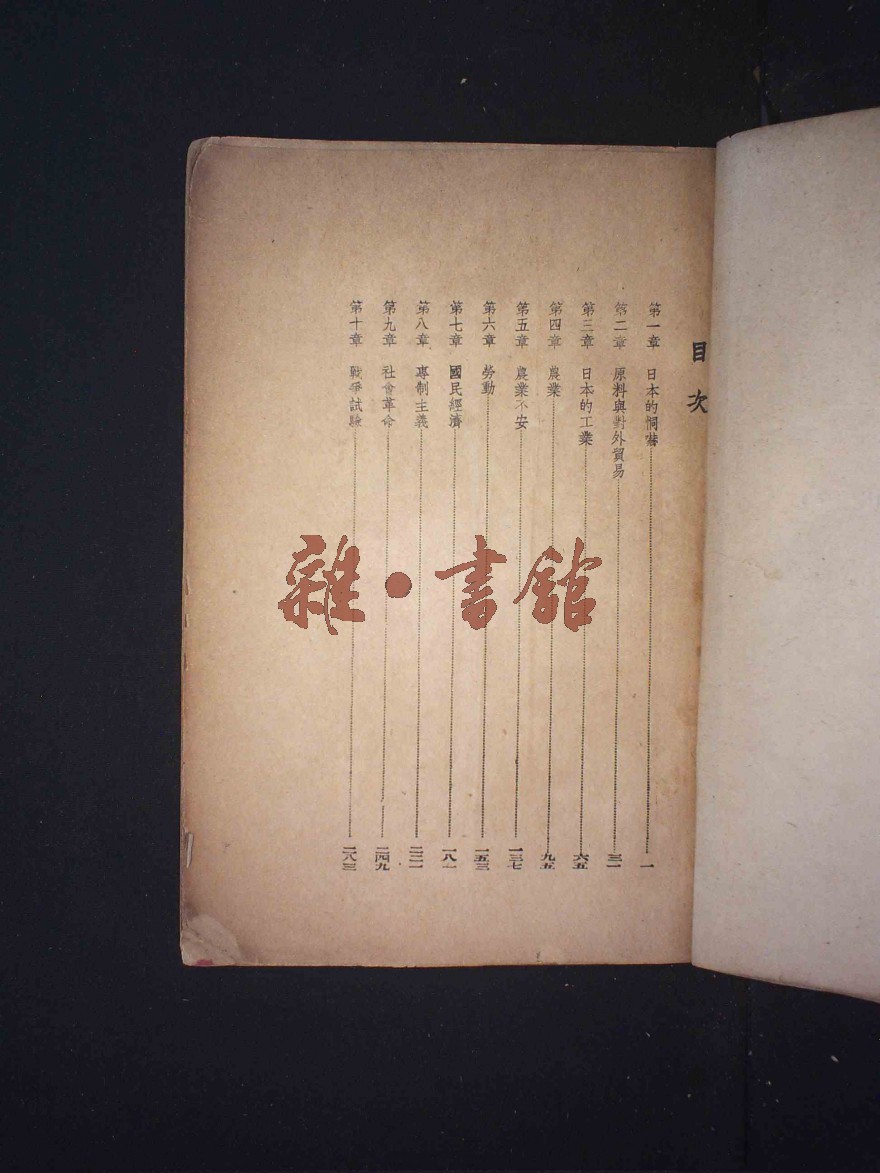 目次
第一章 日本的恫嚇……一
第二章 原料與對外貿易……三一
第三章 日本的工業……六五
第四章 農業……九五
第五章 農業不安……一三七
第六章 勞動……一五三
第七章 國民經濟……一八一
第八章 專制主義……二二一
第九章 社會革命……二四九
第十章 戰爭試驗……二八三
雜·書館